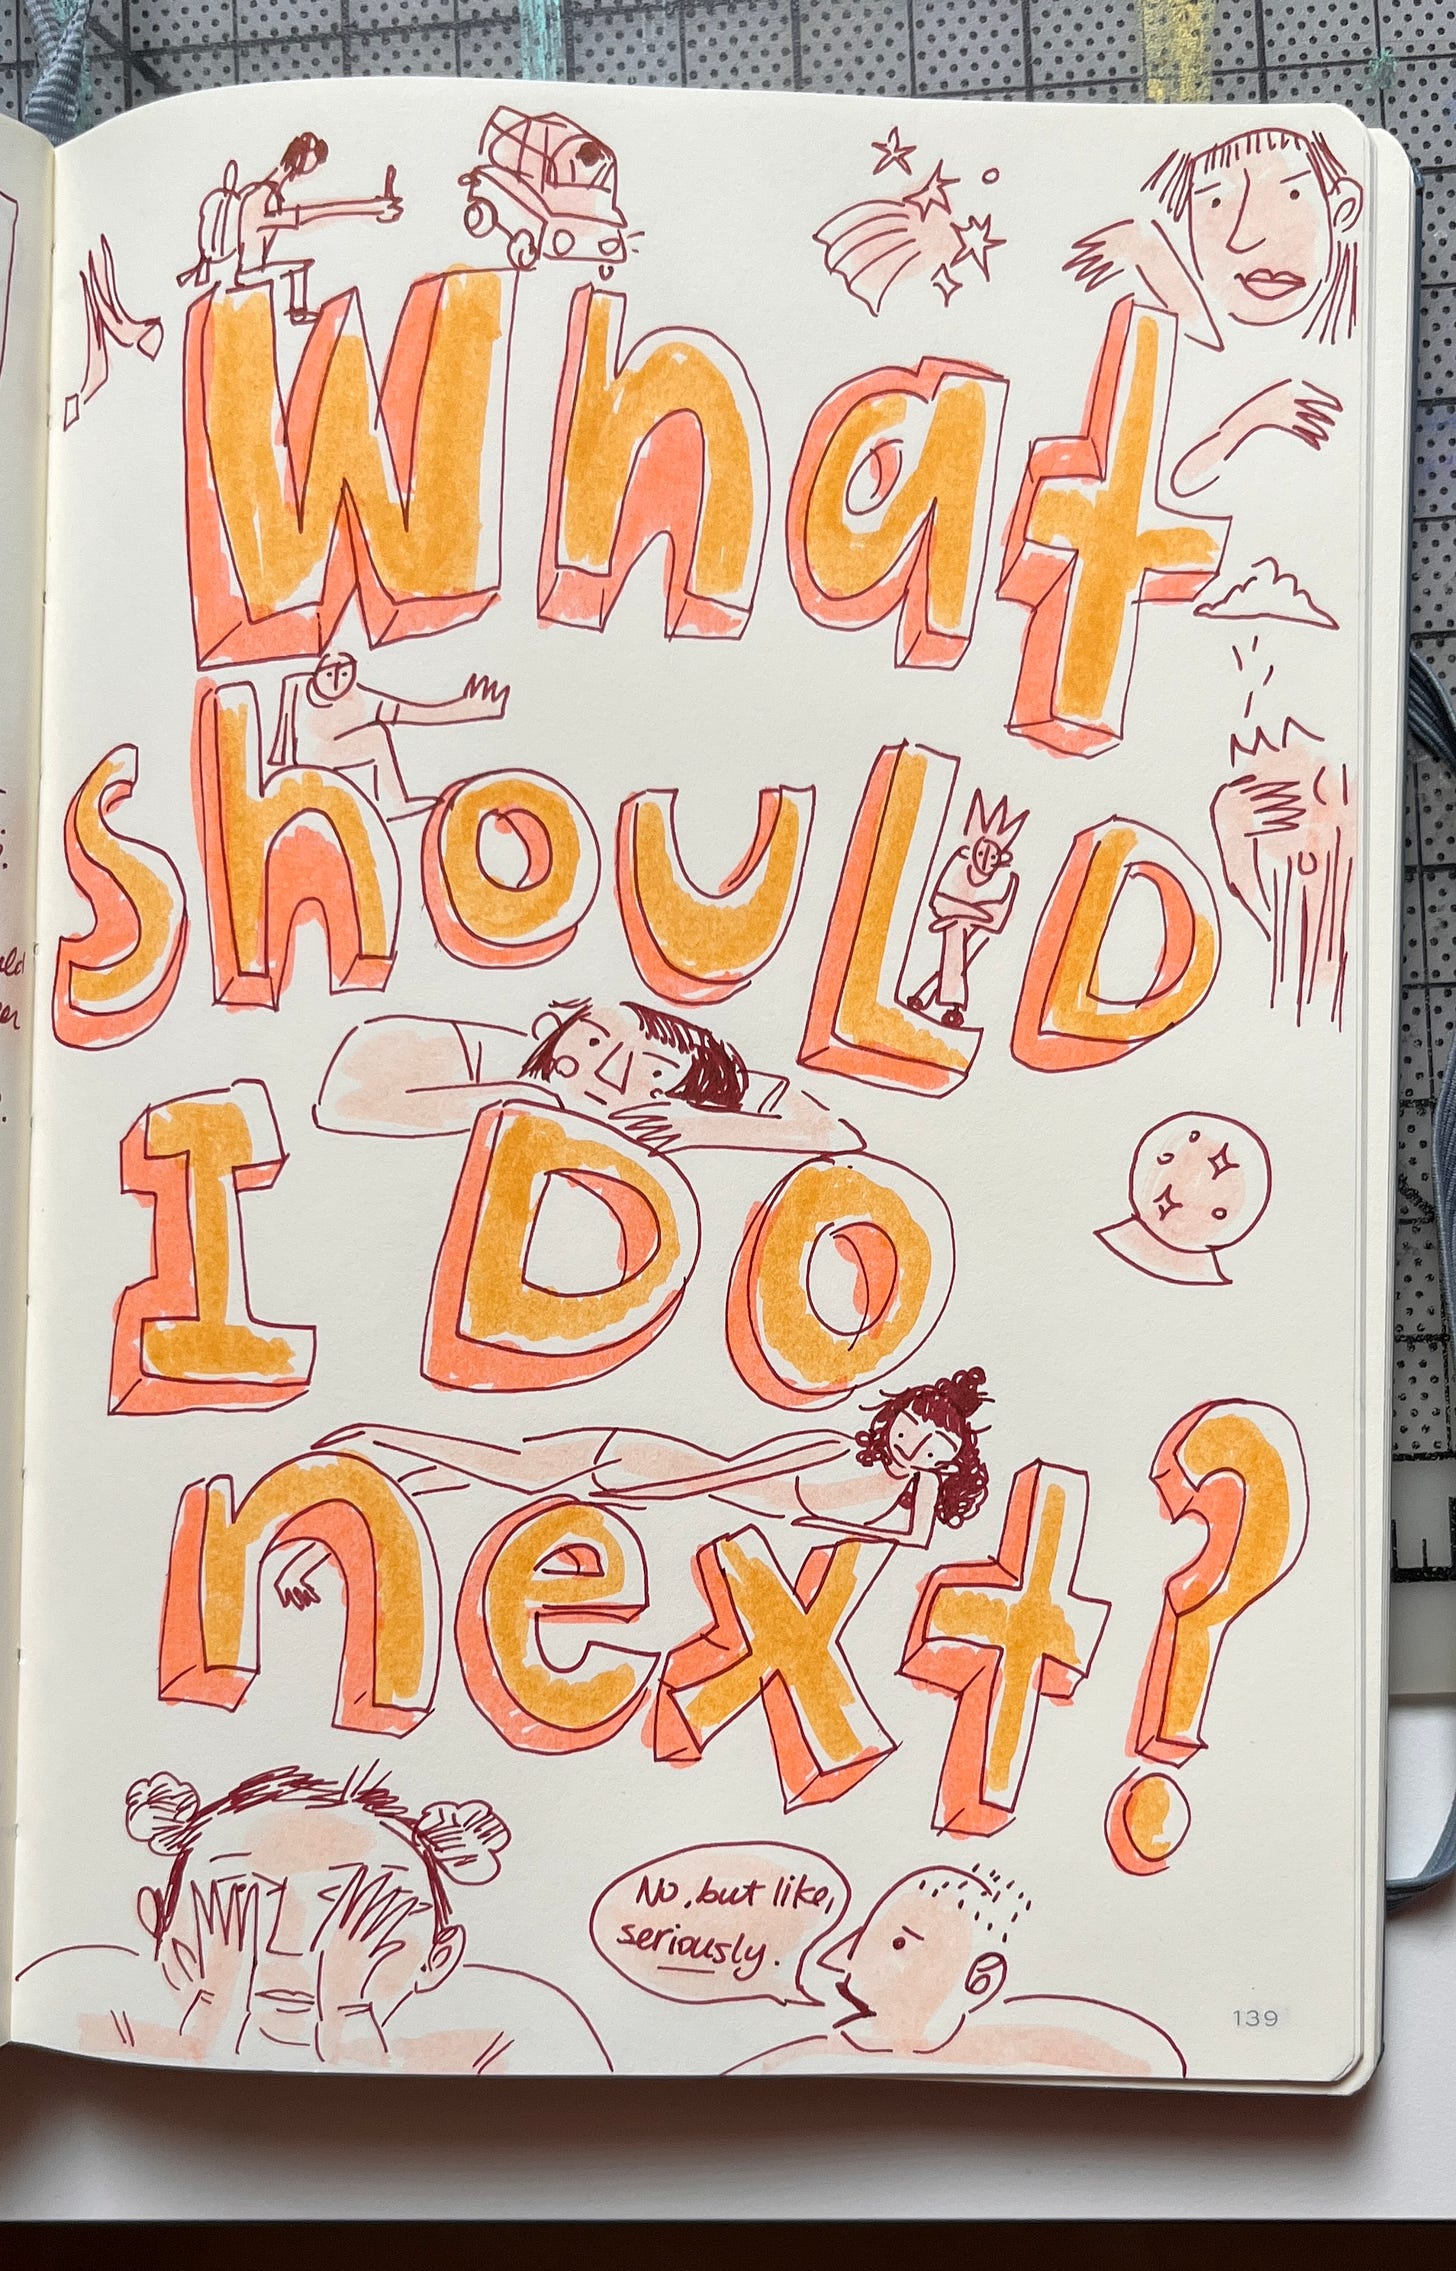 What
should
I Do
next?
No, but like,
seriously.
139